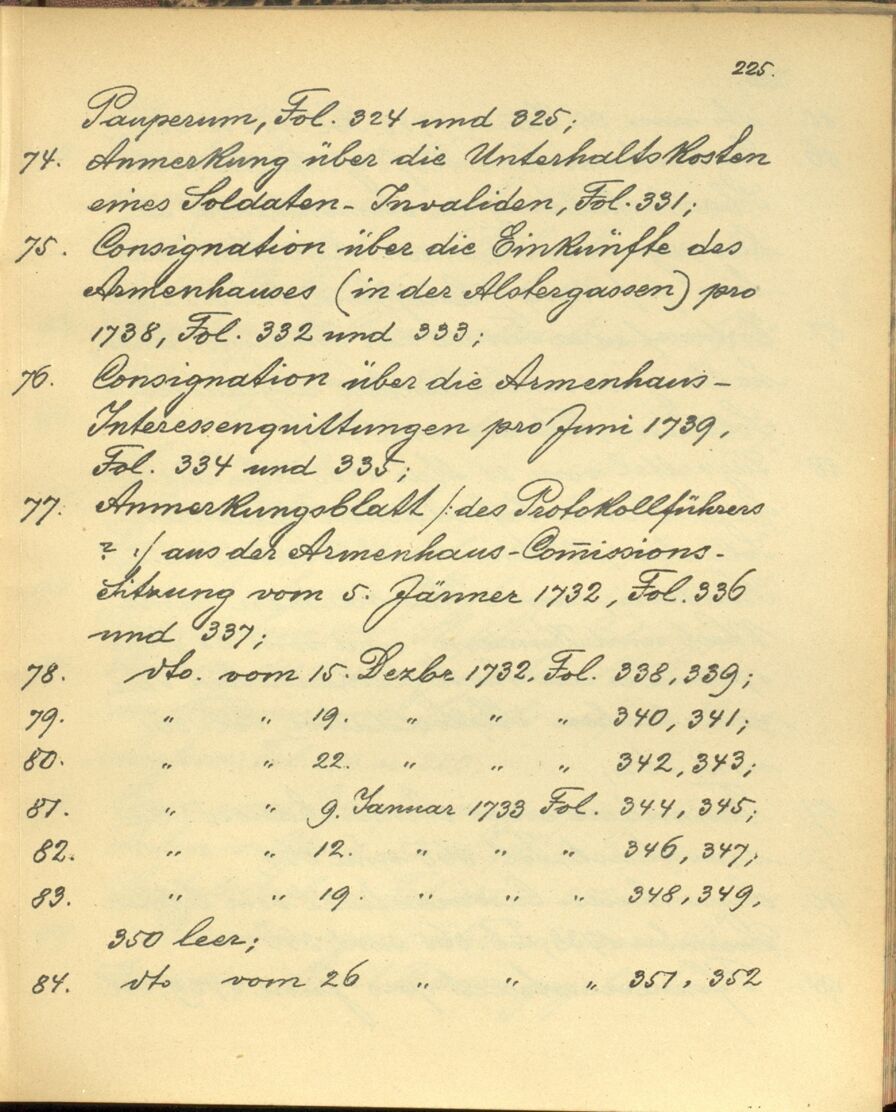 225.
Pauperum, Fol. 324 und 325;
74. Anmerkung über die Unterhaltskosten
eines Soldaten- Invaliden, Fol. 331;
75. Consignation über die Einkünfte des
Armenhauses (in der Alstergassen) pro
1738, Fol. 332 und 333;
76. Consignation über die Armenhaus-
Interessenquittungen pro Juni 1739,
Fol. 334 und 335;
77. Anmerkungsblatt /: des Protokollführers
? :/ aus der Armenhaus-Com̅issions-
Sitzung vom 5. Jänner 1732, Fol. 336
und 337;
78. dto. vom 15. Dezbr 1732. Fol. 338, 339;
79. " " 19. " " " 340, 341;
80. " " 22. " " " 342, 343;
81. " " 9. Januar 1733 Fol. 344, 345;
82. " " 12. " " " 346, 347;
83. " " 19. " " " 348, 349,
350 leer;
84. dto vom 26 " " " 351, 352